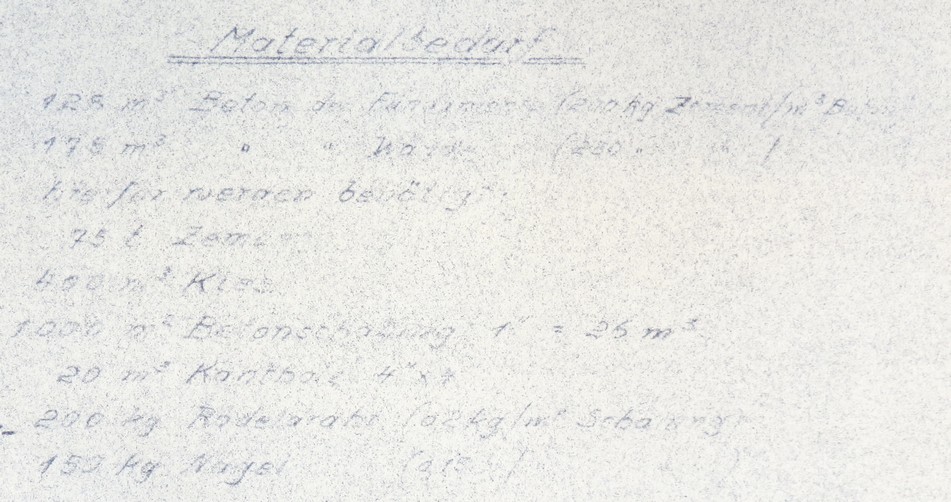 Materialbedarf
125 m³ Beton der Fundamente (200 kg Zement/m³ Beton
175 m³ " " Wände (250 "
hierfür werden benötigt:
75 t Zement
400 m³ Kies
1000 m² Betonschalung 1" = 26 m³
20 m³ Kantholz 4" x
200 kg Rödeldraht (0,2 kg/m² Schalung)
150 kg Nägel